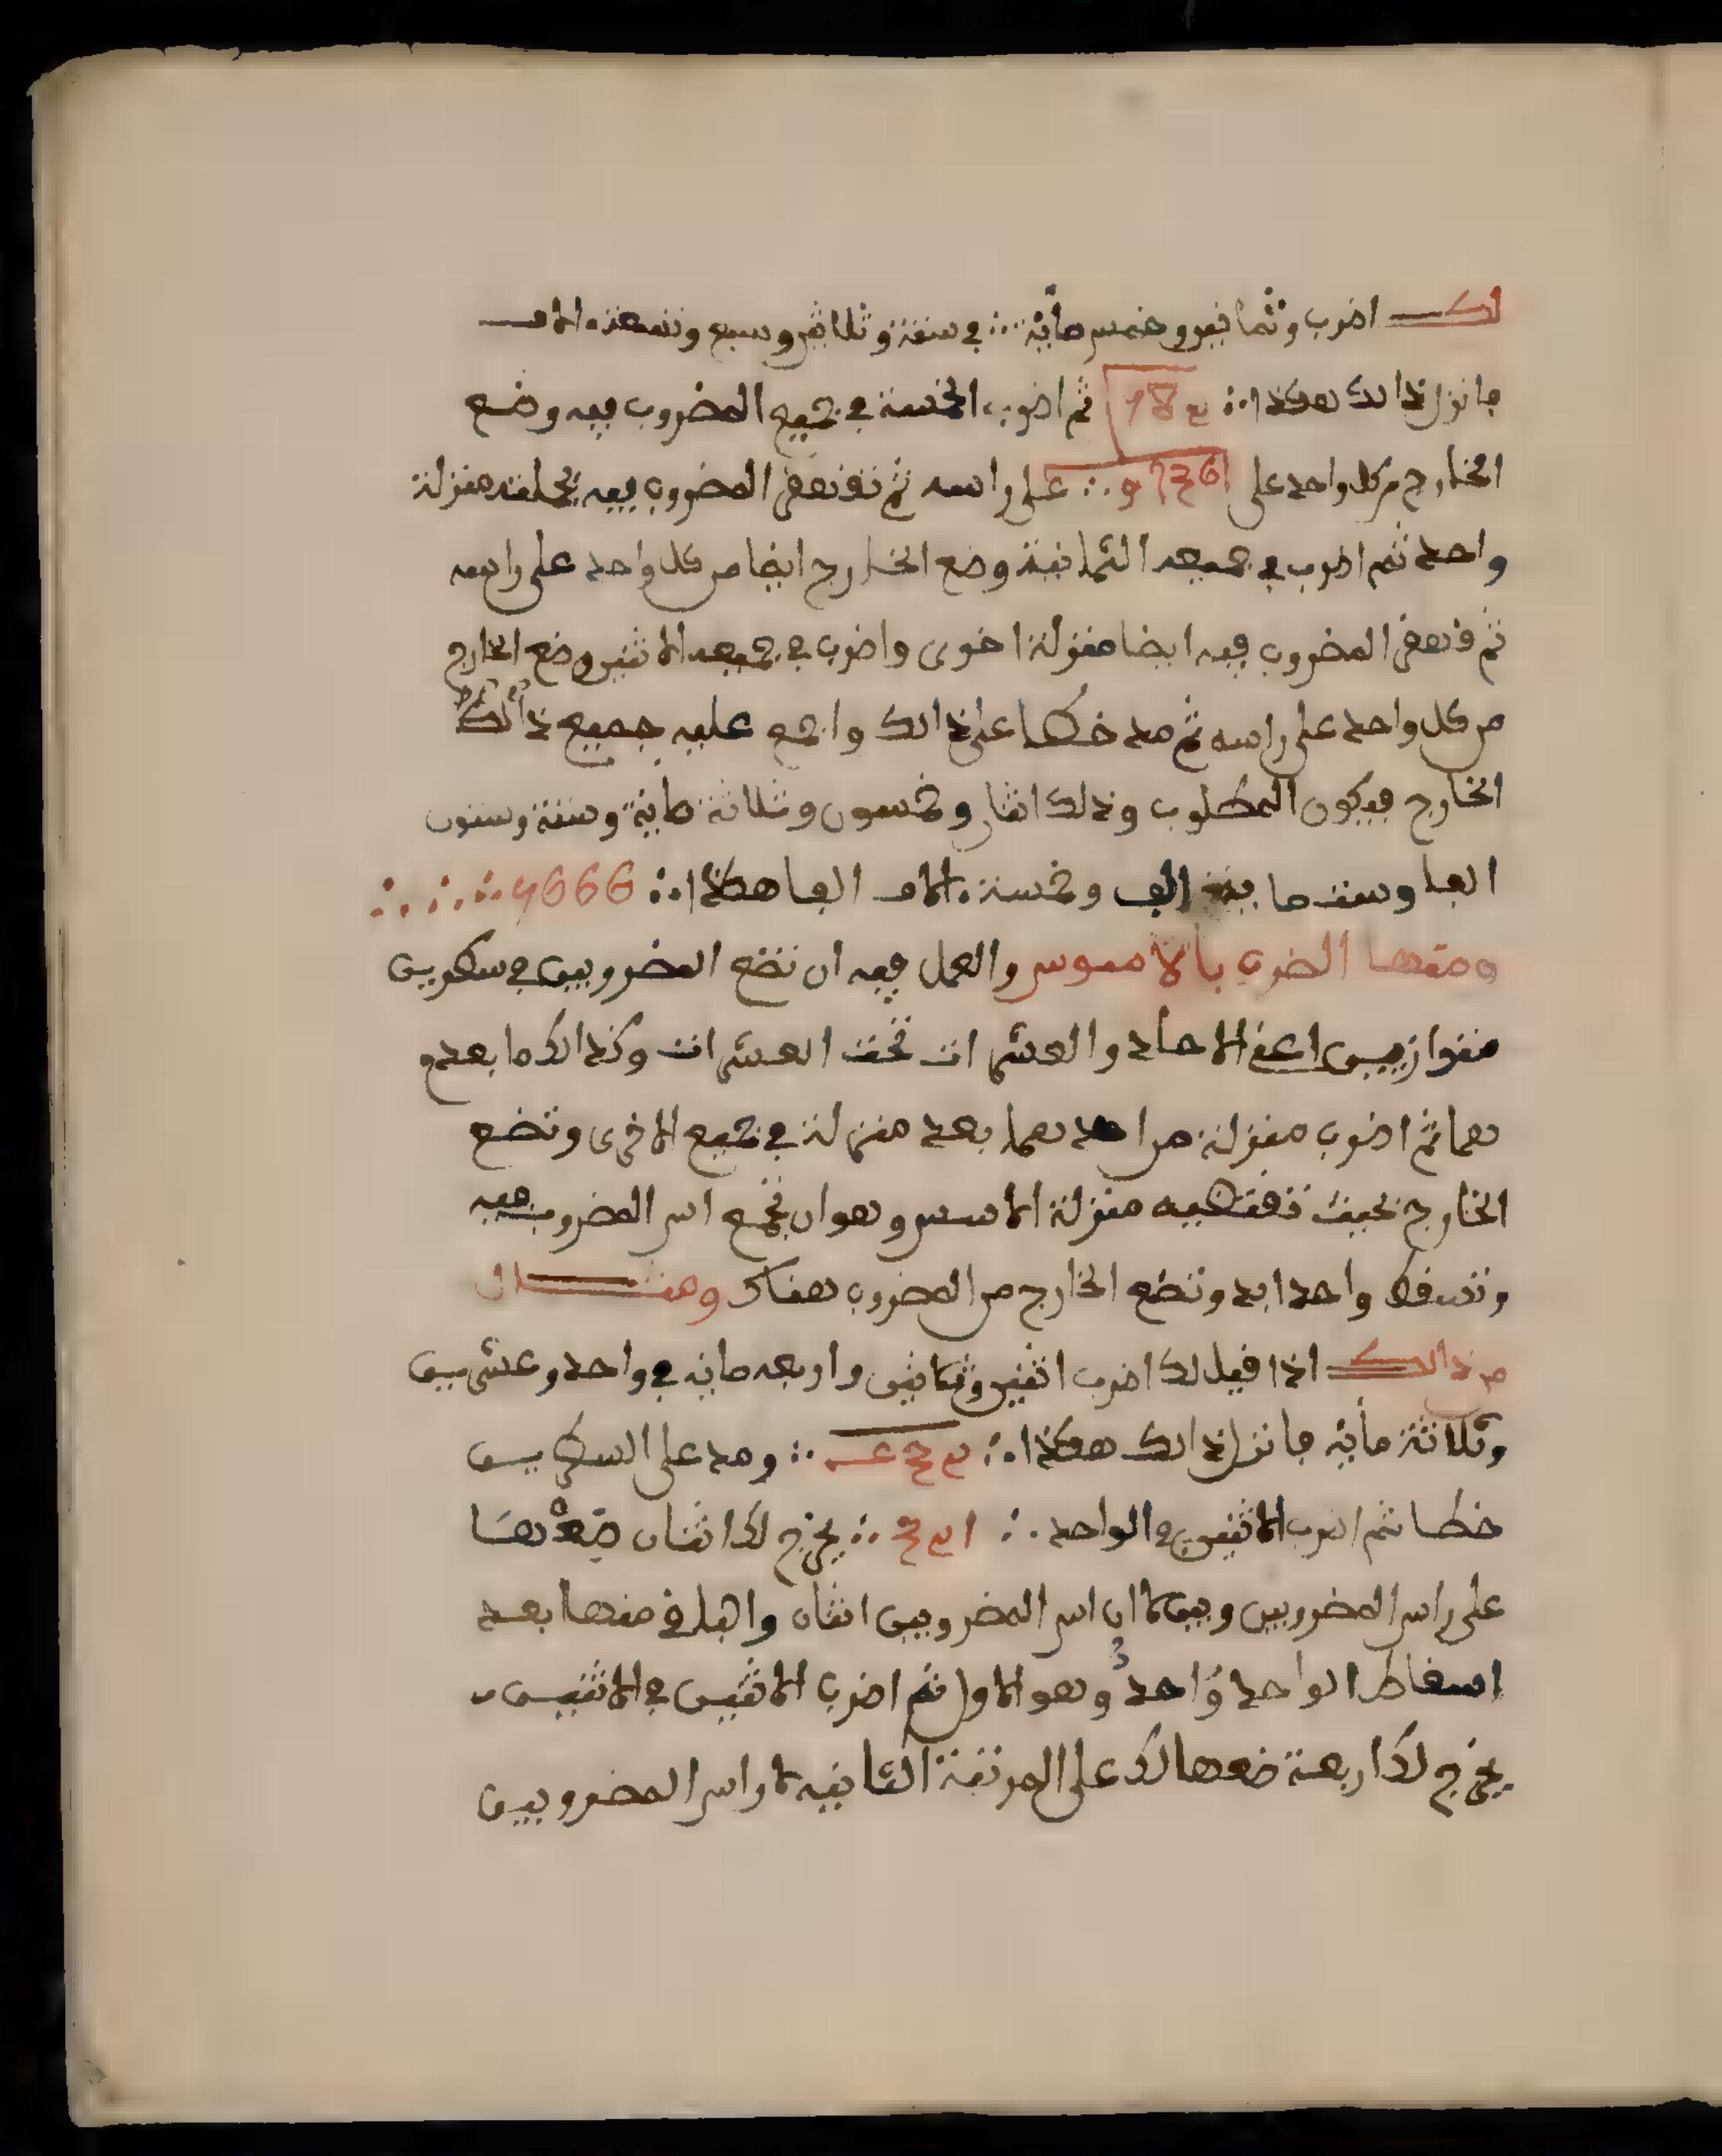 لك اضرب وثمانين وخمس مأية ∴ في ستة وثلاثين وسبع وتسعة الاف
فانزل ذالك هكذا ∴ ثم اضرب الخمسة في جميع المضروب فيه وضع
الخارج من كل واحد على على راسه ثم تقهقر المضروب فيه بخلفه منزلة
واحد ثم اضرب في جميعه الثمانية وضع الخارج ايضا من كل واحد على راسه
ثم قهقر المضروب فيه ايضا منزلة اخرى واضرب في جميعه الاثنين وضع الخارج
من كل واحد على راسه ثم مد خطا على ذالك واجمع عليه جميع ذالك
الخارج فيكون المطلوب وذلك اثنان وخمسون وثلاثة ماية وستة وستون
الفا وست ماية الف وخمسة الاف الفا هكذا ∴
ومنها الضرب بالا والعمل فيه ان تضع المضروبين في سطرين
متوازيين اعنى الاحاد والعشرات تحت العشرات وكذالك ما بعد و
هما ثم اضرب منزلة من احدهما بعد منزلة في جميع الاخرى وتضع
الخارج بحيث تقتضيه منزلة الاسس وهو ان تجمع اس المضروب فيه
وتسقط واحد ابد وتضع الخارج من المضروب هناك ومثال
من ذالك اذا قيل لك اضرب اثنين وثمانين واربعه ماية في واحد وعشرين
وثلاثة مأية فانزل ذالك هكذا ∴ ومد على السطرين
خطا ثم اضرب الاثنين في الواحد ∴ يخرج لك اثنان ضعهما
على راس المضروبين وبين لان اس المضروبين اثنان والباقي منها بعد
اسقاط الواحد واحد وهو الاول ثم اضرب الاثنين في الاثنين
يخرج لك اربعة ضعها لك على المرتبة الثانيه لان اس المضروبين